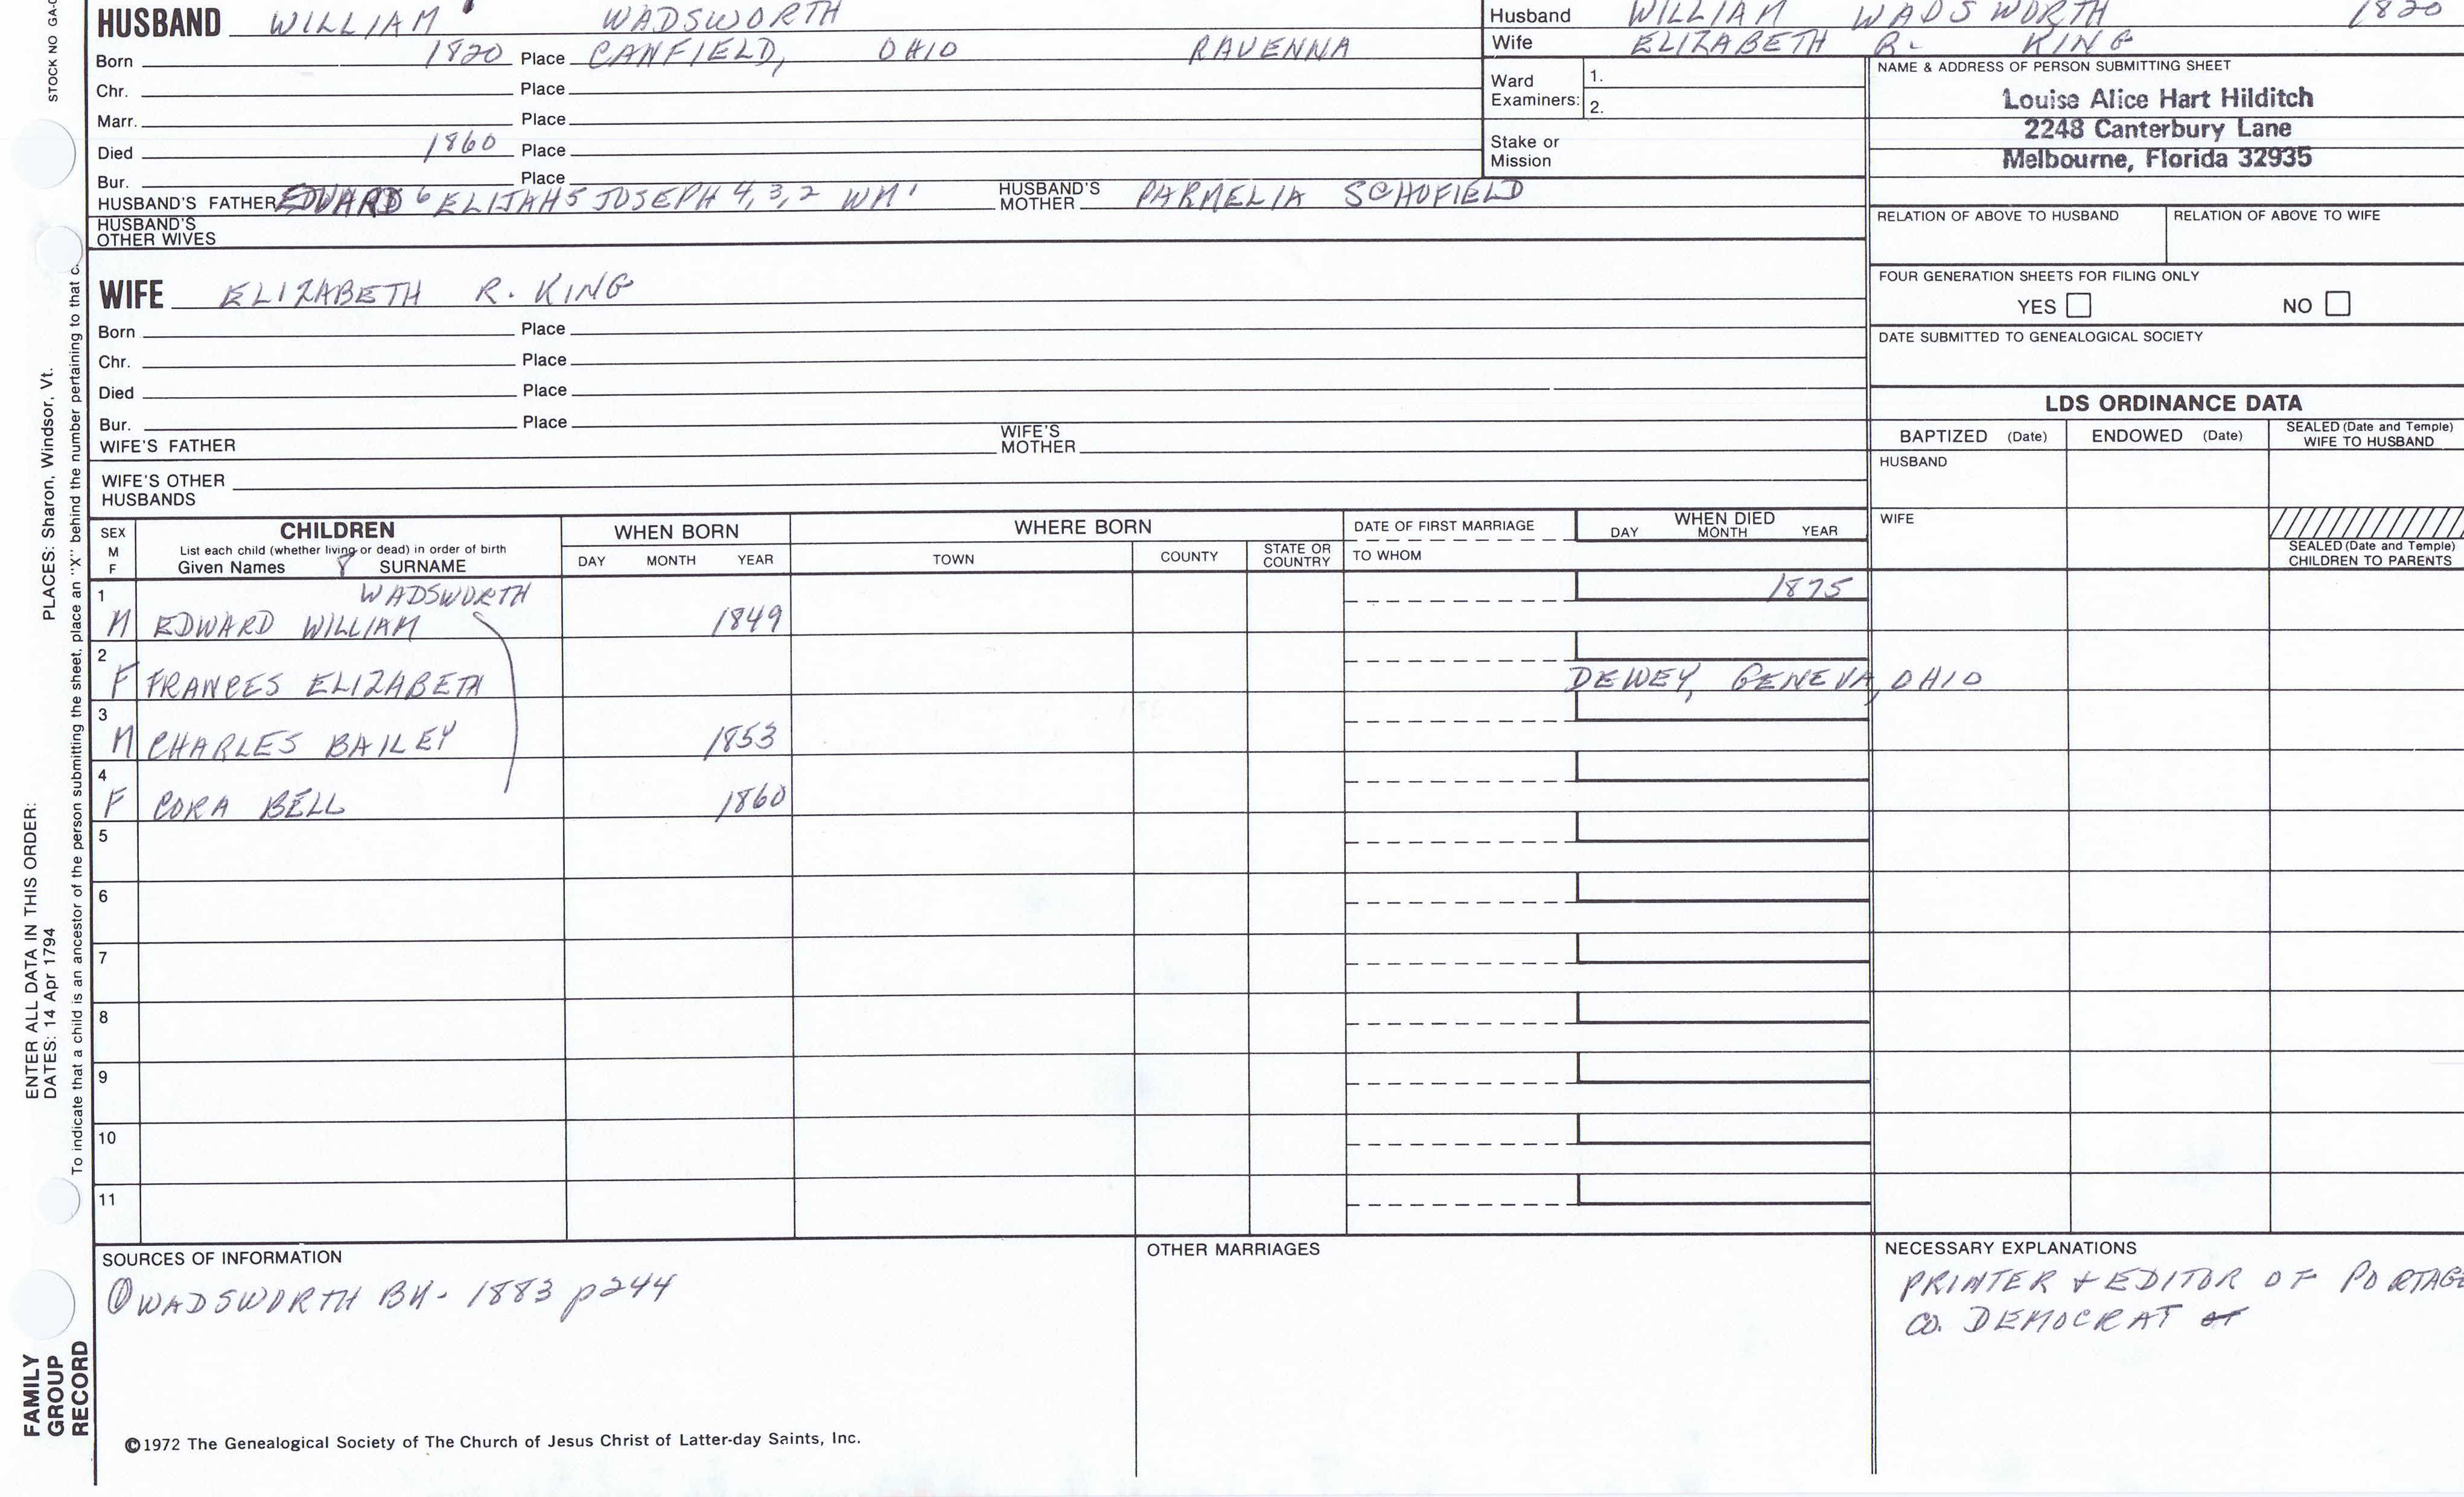 STOCK NO GA-
HUSBAND WILLIAM WADSWORTH
Born 1820 Place CANFIELD, OHIO RAVENNA
Chr. Place
Marr. Place
Died 1860 Place
Bur. Place
HUSBAND'S FATHER EDWARD 6 ELIJAH 5 JOSEPH 4, 3, 2 WM ' HUSBAND'S MOTHER PARMELIA SCHOFIELD
HUSBAND'S OTHER WIVES
WIFE ELIZABETH R. KING
Born Place
Chr. Place
Died Place
Bur. Place
WIFE'S FATHER WIFE'S MOTHER
WIFE'S OTHER HUSBANDS
Husband WILLIAM WADSWORTH 1820
Wife ELIZABETH R. KING
Ward Examiners: 1.
2.
Stake or Mission
NAME & ADDRESS OF PERSON SUBMITTING SHEET
Louise Alice Hart Hilditch
2248 Canterbury Lane
Melbourne, Florida 32935
RELATION OF ABOVE TO HUSBAND RELATION OF ABOVE TO WIFE
FOUR GENERATION SHEETS FOR FILING ONLY
YES NO
DATE SUBMITTED TO GENEALOGICAL SOCIETY
LDS ORDINANCE DATA
BAPTIZED (Date) ENDOWED (Date) SEALED (Date and Temple) WIFE TO HUSBAND
HUSBAND
WIFE
SEALED (Date and Temple) CHILDREN TO PARENTS
SEX M F
CHILDREN
List each child (whether living or dead) in order of birth
Given Names 8 SURNAME
WHEN BORN
DAY MONTH YEAR
WHERE BORN
TOWN COUNTY STATE OR COUNTRY
DATE OF FIRST MARRIAGE
TO WHOM
WHEN DIED
DAY MONTH YEAR
1 WADSWORTH 1875
M EDWARD WILLIAM 1849
2
F FRANCES ELIZABETH DEWEY, GENEVA, OHIO
3
M CHARLES BAILEY 1853
4
F CORA BELL 1860
5
6
7
8
9
10
11
SOURCES OF INFORMATION
① WADSWORTH BK - 1883 p244
OTHER MARRIAGES
NECESSARY EXPLANATIONS
PRINTER & EDITOR OF PORTAGE
CO. DEMOCRAT
©1972 The Genealogical Society of The Church of Jesus Christ of Latter-day Saints, Inc.
FAMILY
GROUP
RECORD
ENTER ALL DATA IN THIS ORDER:
DATES: 14 Apr 1794
PLACES: Sharon, Windsor, Vt.
To indicate that a child is an ancestor of the person submitting the sheet, place an "X" behind the number pertaining to that c